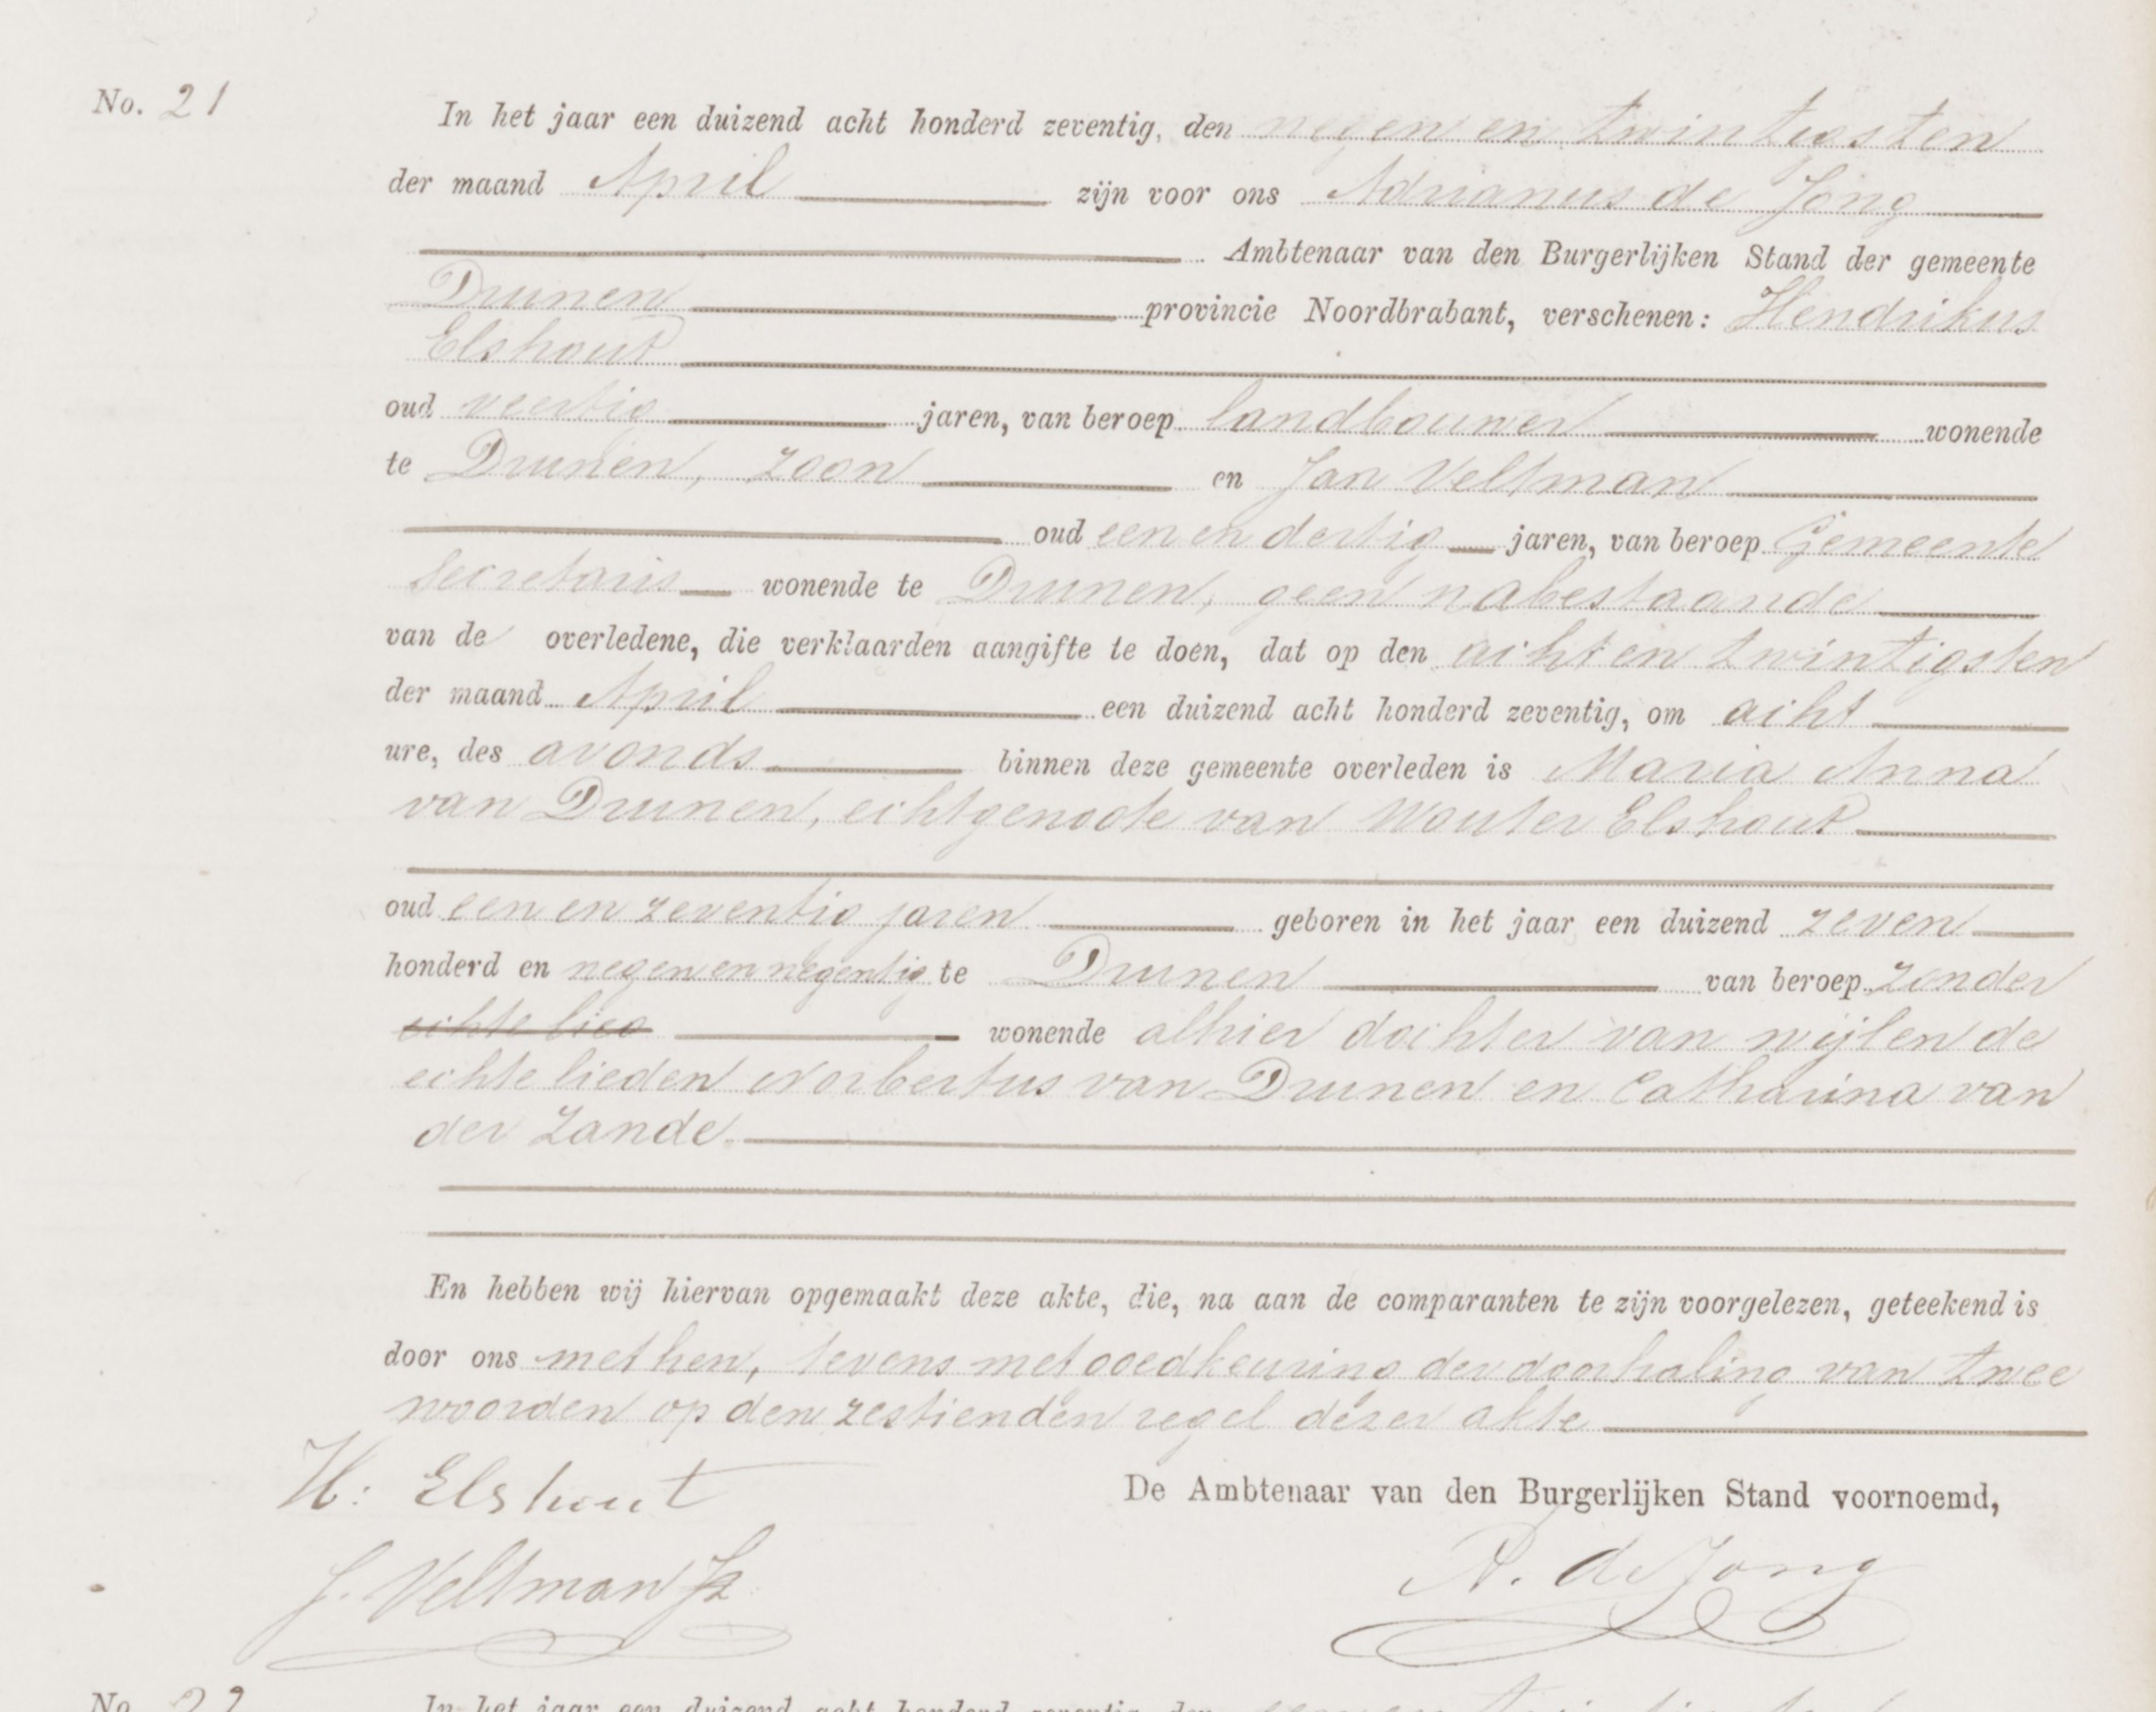 No. 21
In het jaar een duizend acht honderd zeventig, den negen en twintigsten
der maand April zijn voor ons Adrianus de Jong
Ambtenaar van den Burgerlijken Stand der gemeente
Drunen provincie Noordbrabant, verschenen: Hendrikus
Elshout
oud veertig jaren, van beroep landbouwer wonende
te Drunen, zoon en Jan Veltman
oud een en dertig jaren, van beroep Gemeente
Secretaris wonende te Drunen, geen nabestaande
van de overledene, die verklaarden aangifte te doen, dat op den acht en twintigsten
der maand April een duizend acht honderd zeventig, om acht
ure, des avonds binnen deze gemeente overleden is Maria Anna
van Drunen, echtgenoote van Wouter Elshout
oud een en zeventig jaren geboren in het jaar een duizend zeven
honderd en negen en negentig te Drunen van beroep zonder
echte lied wonende alhier dochter van wijlen de
echte lieden Norbertus van Drunen en Catharina van
der Zande.
En hebben wij hiervan opgemaakt deze akte, die, na aan de comparanten te zijn voorgelezen, geteekend is
door ons met hen, tevens met goedkeuring der doorhaling van twee
woorden op den zestienden regel dezer akte
H: Elshout
De Ambtenaar van den Burgerlijken Stand voornoemd,
J. Veltman Jz
A. de Jong
No. 22
In het jaar een duizend acht honderd zeventig, den